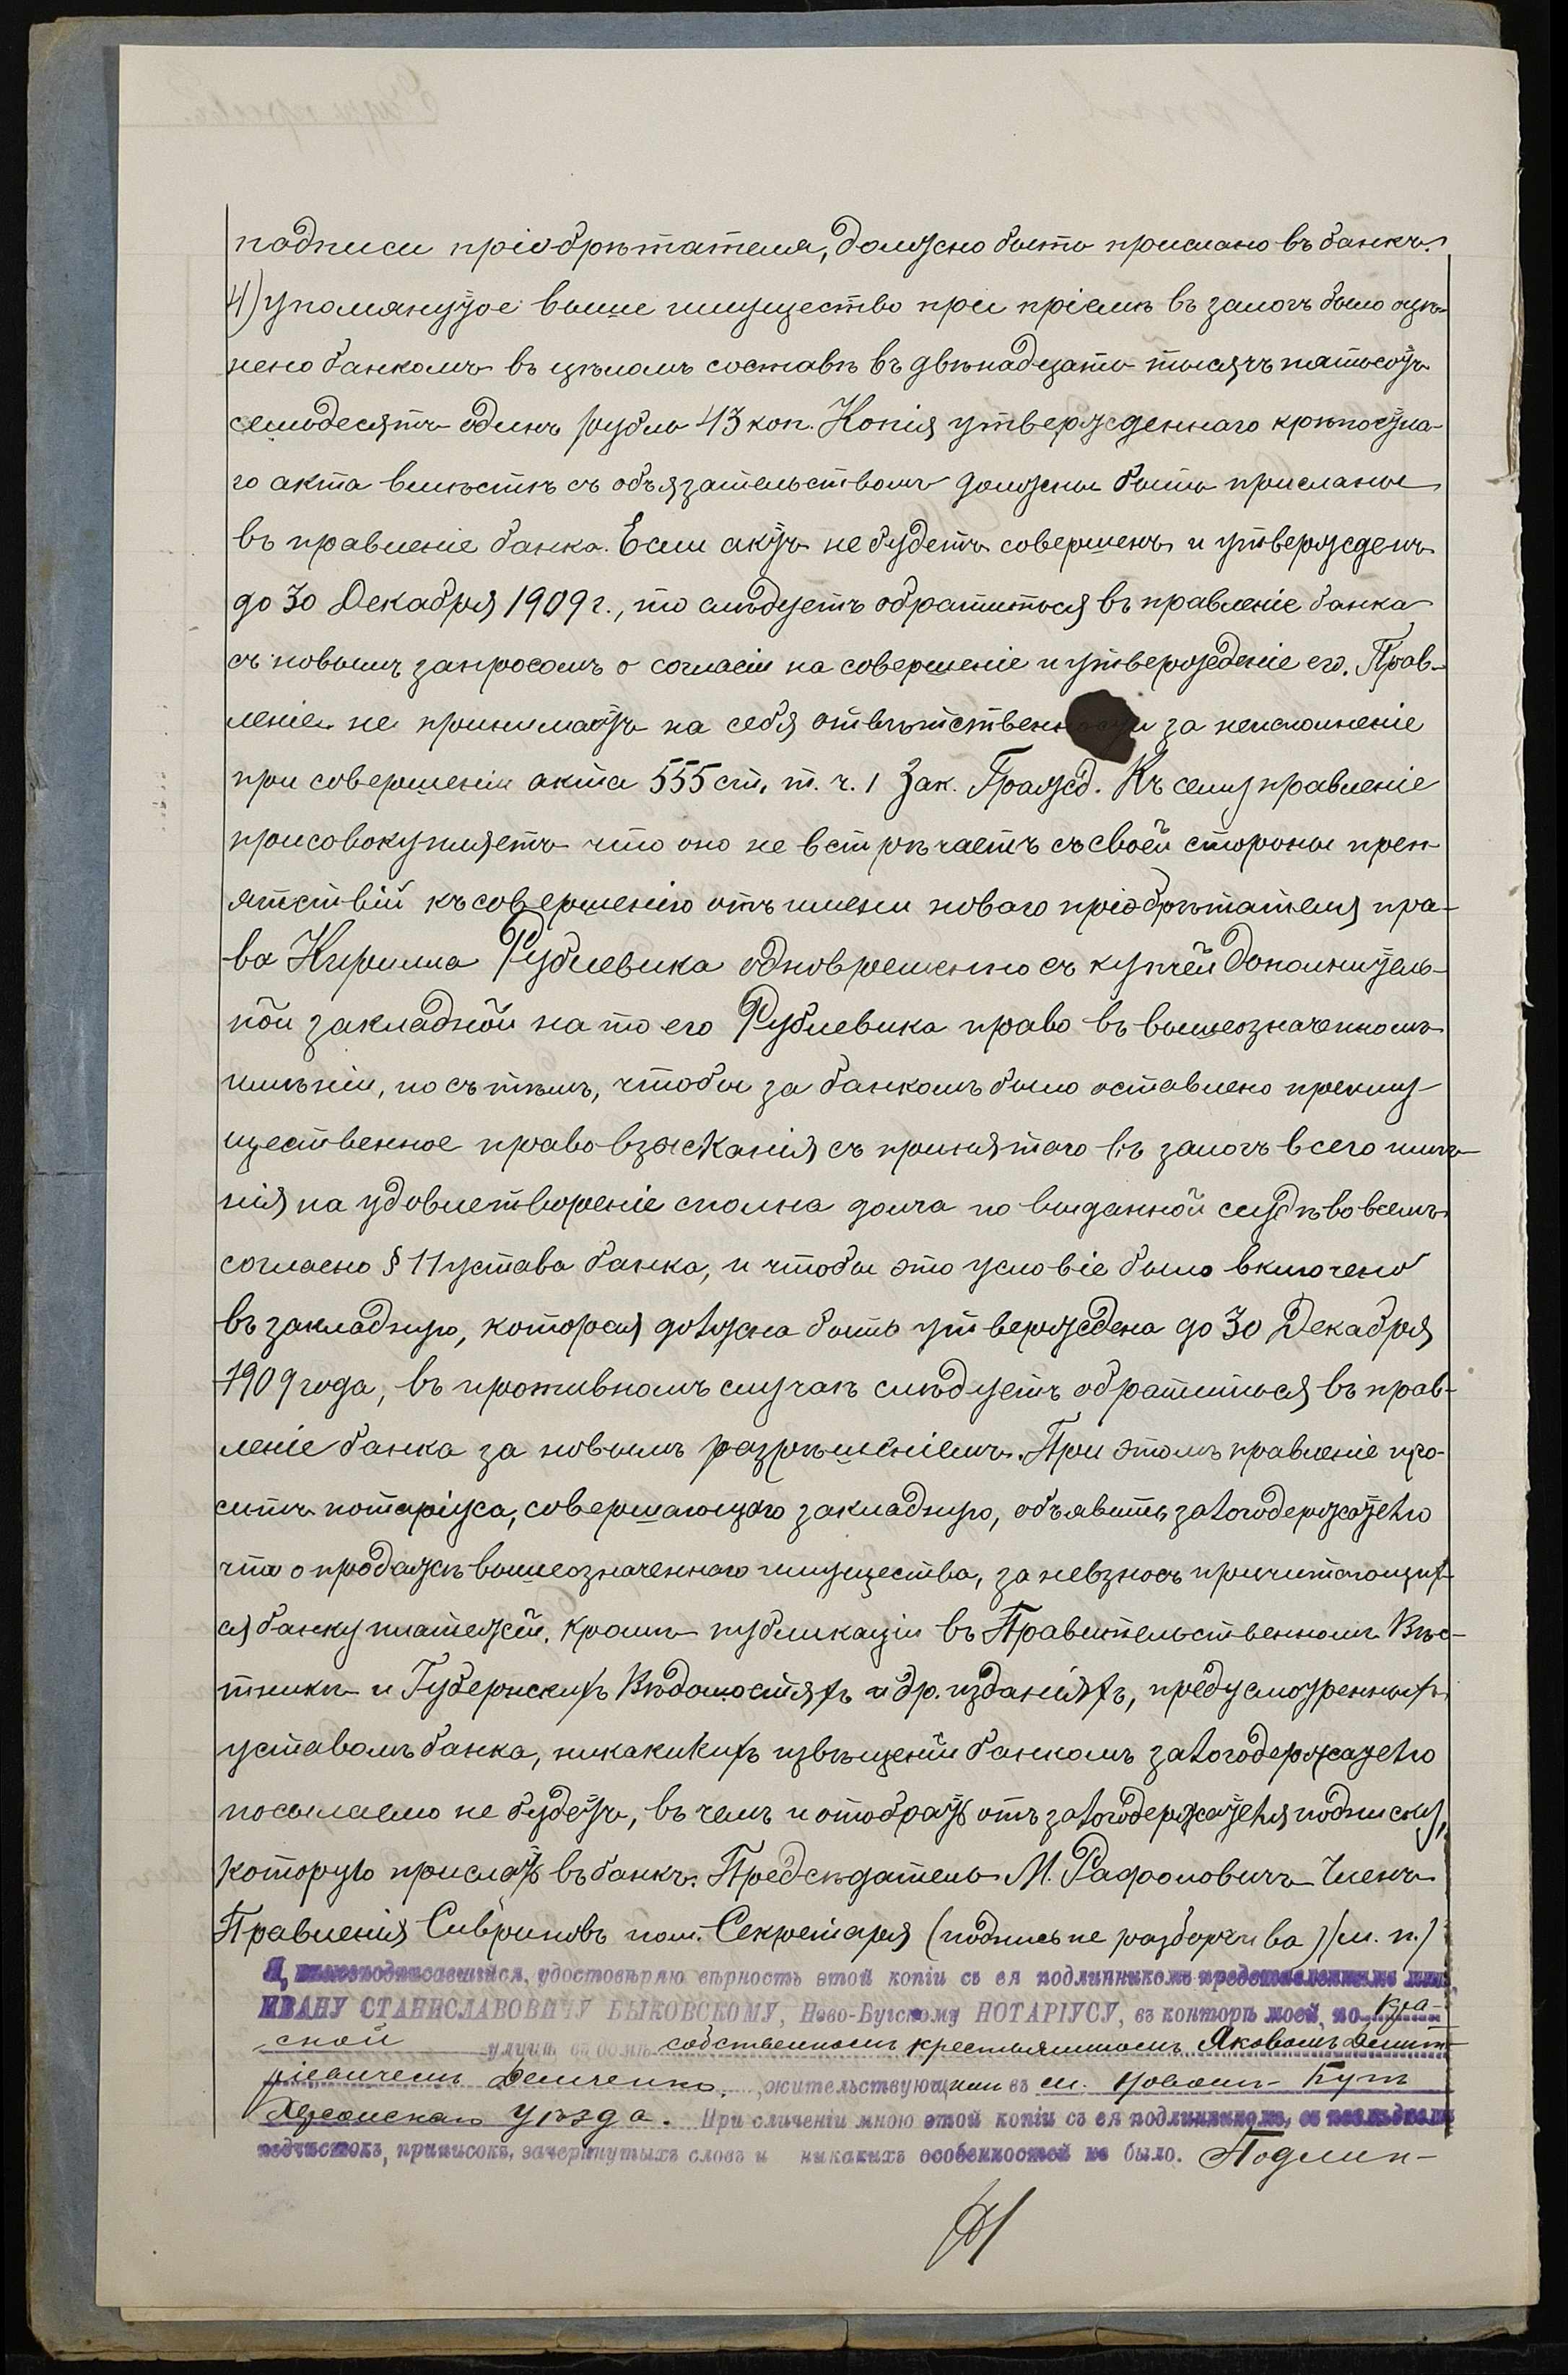 подписи пріобрѣтателя, должно быть прислано въ банкъ.
4) упомянутое выше имущество при пріемѣ въ залогъ было оцѣ-
нено банкомъ въ цѣломъ составѣ въ двѣнадцать тысячъ пятьсотъ
семьдесятъ одинъ рубль 43 коп. Копія утвержденнаго крѣпостна-
го акта вмѣстѣ съ обязательствомъ должны быть присланы
въ правленіе банка. Если актъ не будетъ совершенъ и утвержденъ
до 30 Декабря 1909 г., то слѣдуетъ обратиться въ правленіе банка
съ новымъ запросомъ о согласіи на совершеніе и утвержденіе его. Прав-
леніе не принимаетъ на себя отвѣтственности за неисполненіе
при совершеніи акта 555 ст. т. ч. 1 Зак. Гражд. Къ сему правленіе
присовокупляетъ что оно не встрѣчаетъ съ своей стороны преп-
ятствій къ совершенію отъ имени новаго пріобрѣтателя пра-
ва Кирилла Рублевика одновременно съ купчей дополнитель-
ной закладной на то его Рублевика право въ вышеозначенномъ
имѣніи, но съ тѣмъ, чтобы за банкомъ было оставлено преиму-
щественное право взысканія съ принятаго въ залогъ всего имѣ-
нія на удовлетвореніе сполна долга по выданной ссудѣ во всемъ
согласно § 11 устава банка, и чтобы это условіе было включено
въ закладную, которая должна быть утверждена до 30 Декабря
1909 года, въ противномъ случаѣ слѣдуетъ обратиться въ прав-
леніе банка за новымъ разрѣшеніемъ. При этомъ правленіе про-
ситъ нотаріуса, совершающаго закладную, объявить залогодержателю
что о продажѣ вышеозначеннаго имущества, за невзносъ причитающих-
ся банку платежей, кромѣ публикаціи въ Правительственномъ Вѣс-
тникѣ и Губернскихъ Вѣдомостяхъ и др. изданіяхъ, предусмотренныхъ
уставомъ банка, никакихъ извѣщеній банкомъ залогодержателю
посылаемо не будетъ, въ чемъ и отобрать отъ залогодержателя подписку,
которую прислать въ банкъ. Предсѣдатель М. Рафаловичъ Членъ
Правленія Сивриновъ пом. Секретаря (подпись не разборчива) (м. п.)
Я, нижеподписавшійся, удостовѣряю вѣрность этой копіи съ ея подлинникомъ представленнымъ мнѣ,
ИВАНУ СТАНИСЛАВОВИЧУ БЫКОВСКОМУ, Ново-Бугскому НОТАРІУСУ, въ конторѣ моей, по
ской улицѣ въ домѣ собственномъ крестьяниномъ Яковомъ Дмит-
ріевичемъ Демченко, жительствующимъ въ
Херсонскаго уѣзда. При сличеніи мною этой копіи съ ея подлинникомъ, въ послѣднемъ
подчистокъ, приписокъ, зачеркнутыхъ словъ и никакихъ особенностей не было. Подлин-